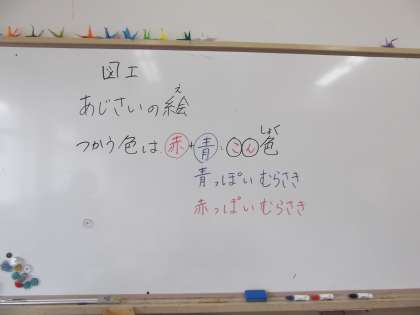 図工
あじさいの絵
え
つかう色は赤+青・こん色
しょく
青っぽいむらさき
赤っぽいむらさき